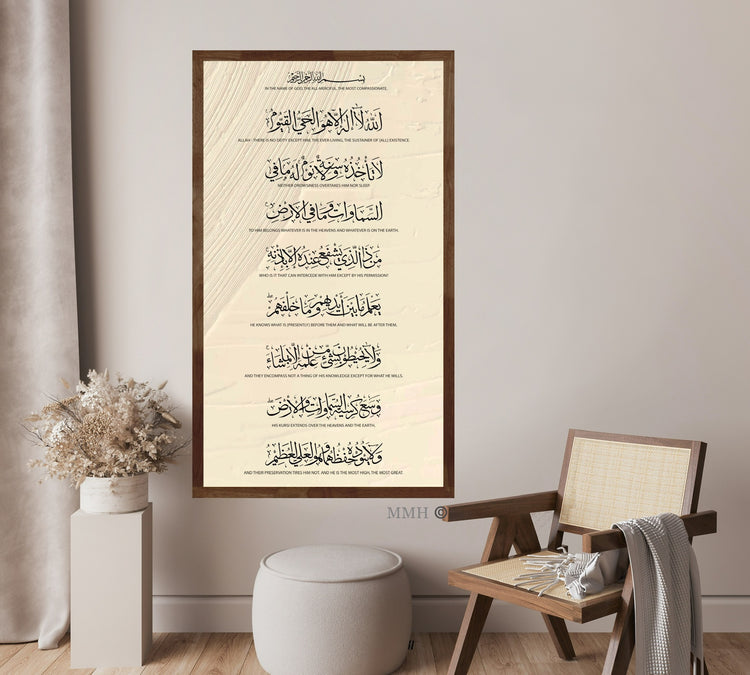 بسم الله الرحمن الرحيم
IN THE NAME OF GOD, THE ALL-MERCIFUL, THE MOST COMPASSIONATE.
الله لا إله إلا هو الحي القيوم
ALLAH - THERE IS NO DEITY EXCEPT HIM, THE EVER-LIVING, THE SUSTAINER OF [ALL] EXISTENCE.
لا تأخذه سنة ولا نوم له ما في
NEITHER DROWSINESS OVERTAKES HIM NOR SLEEP.
السماوات وما في الأرض
TO HIM BELONGS WHATEVER IS IN THE HEAVENS AND WHATEVER IS ON THE EARTH.
من ذا الذي يشفع عنده إلا بإذنه
WHO IS IT THAT CAN INTERCEDE WITH HIM EXCEPT BY HIS PERMISSION?
يعلم ما بين أيديهم وما خلفهم
HE KNOWS WHAT IS [PRESENTLY] BEFORE THEM AND WHAT WILL BE AFTER THEM,
ولا يحيطون بشيء من علمه إلا بما شاء
AND THEY ENCOMPASS NOT A THING OF HIS KNOWLEDGE EXCEPT FOR WHAT HE WILLS.
وسع كرسيه السماوات والأرض
HIS KURSI EXTENDS OVER THE HEAVENS AND THE EARTH,
ولا يئوده حفظهما وهو العلي العظيم
AND THEIR PRESERVATION TIRES HIM NOT. AND HE IS THE MOST HIGH, THE MOST GREAT.
MMH ©